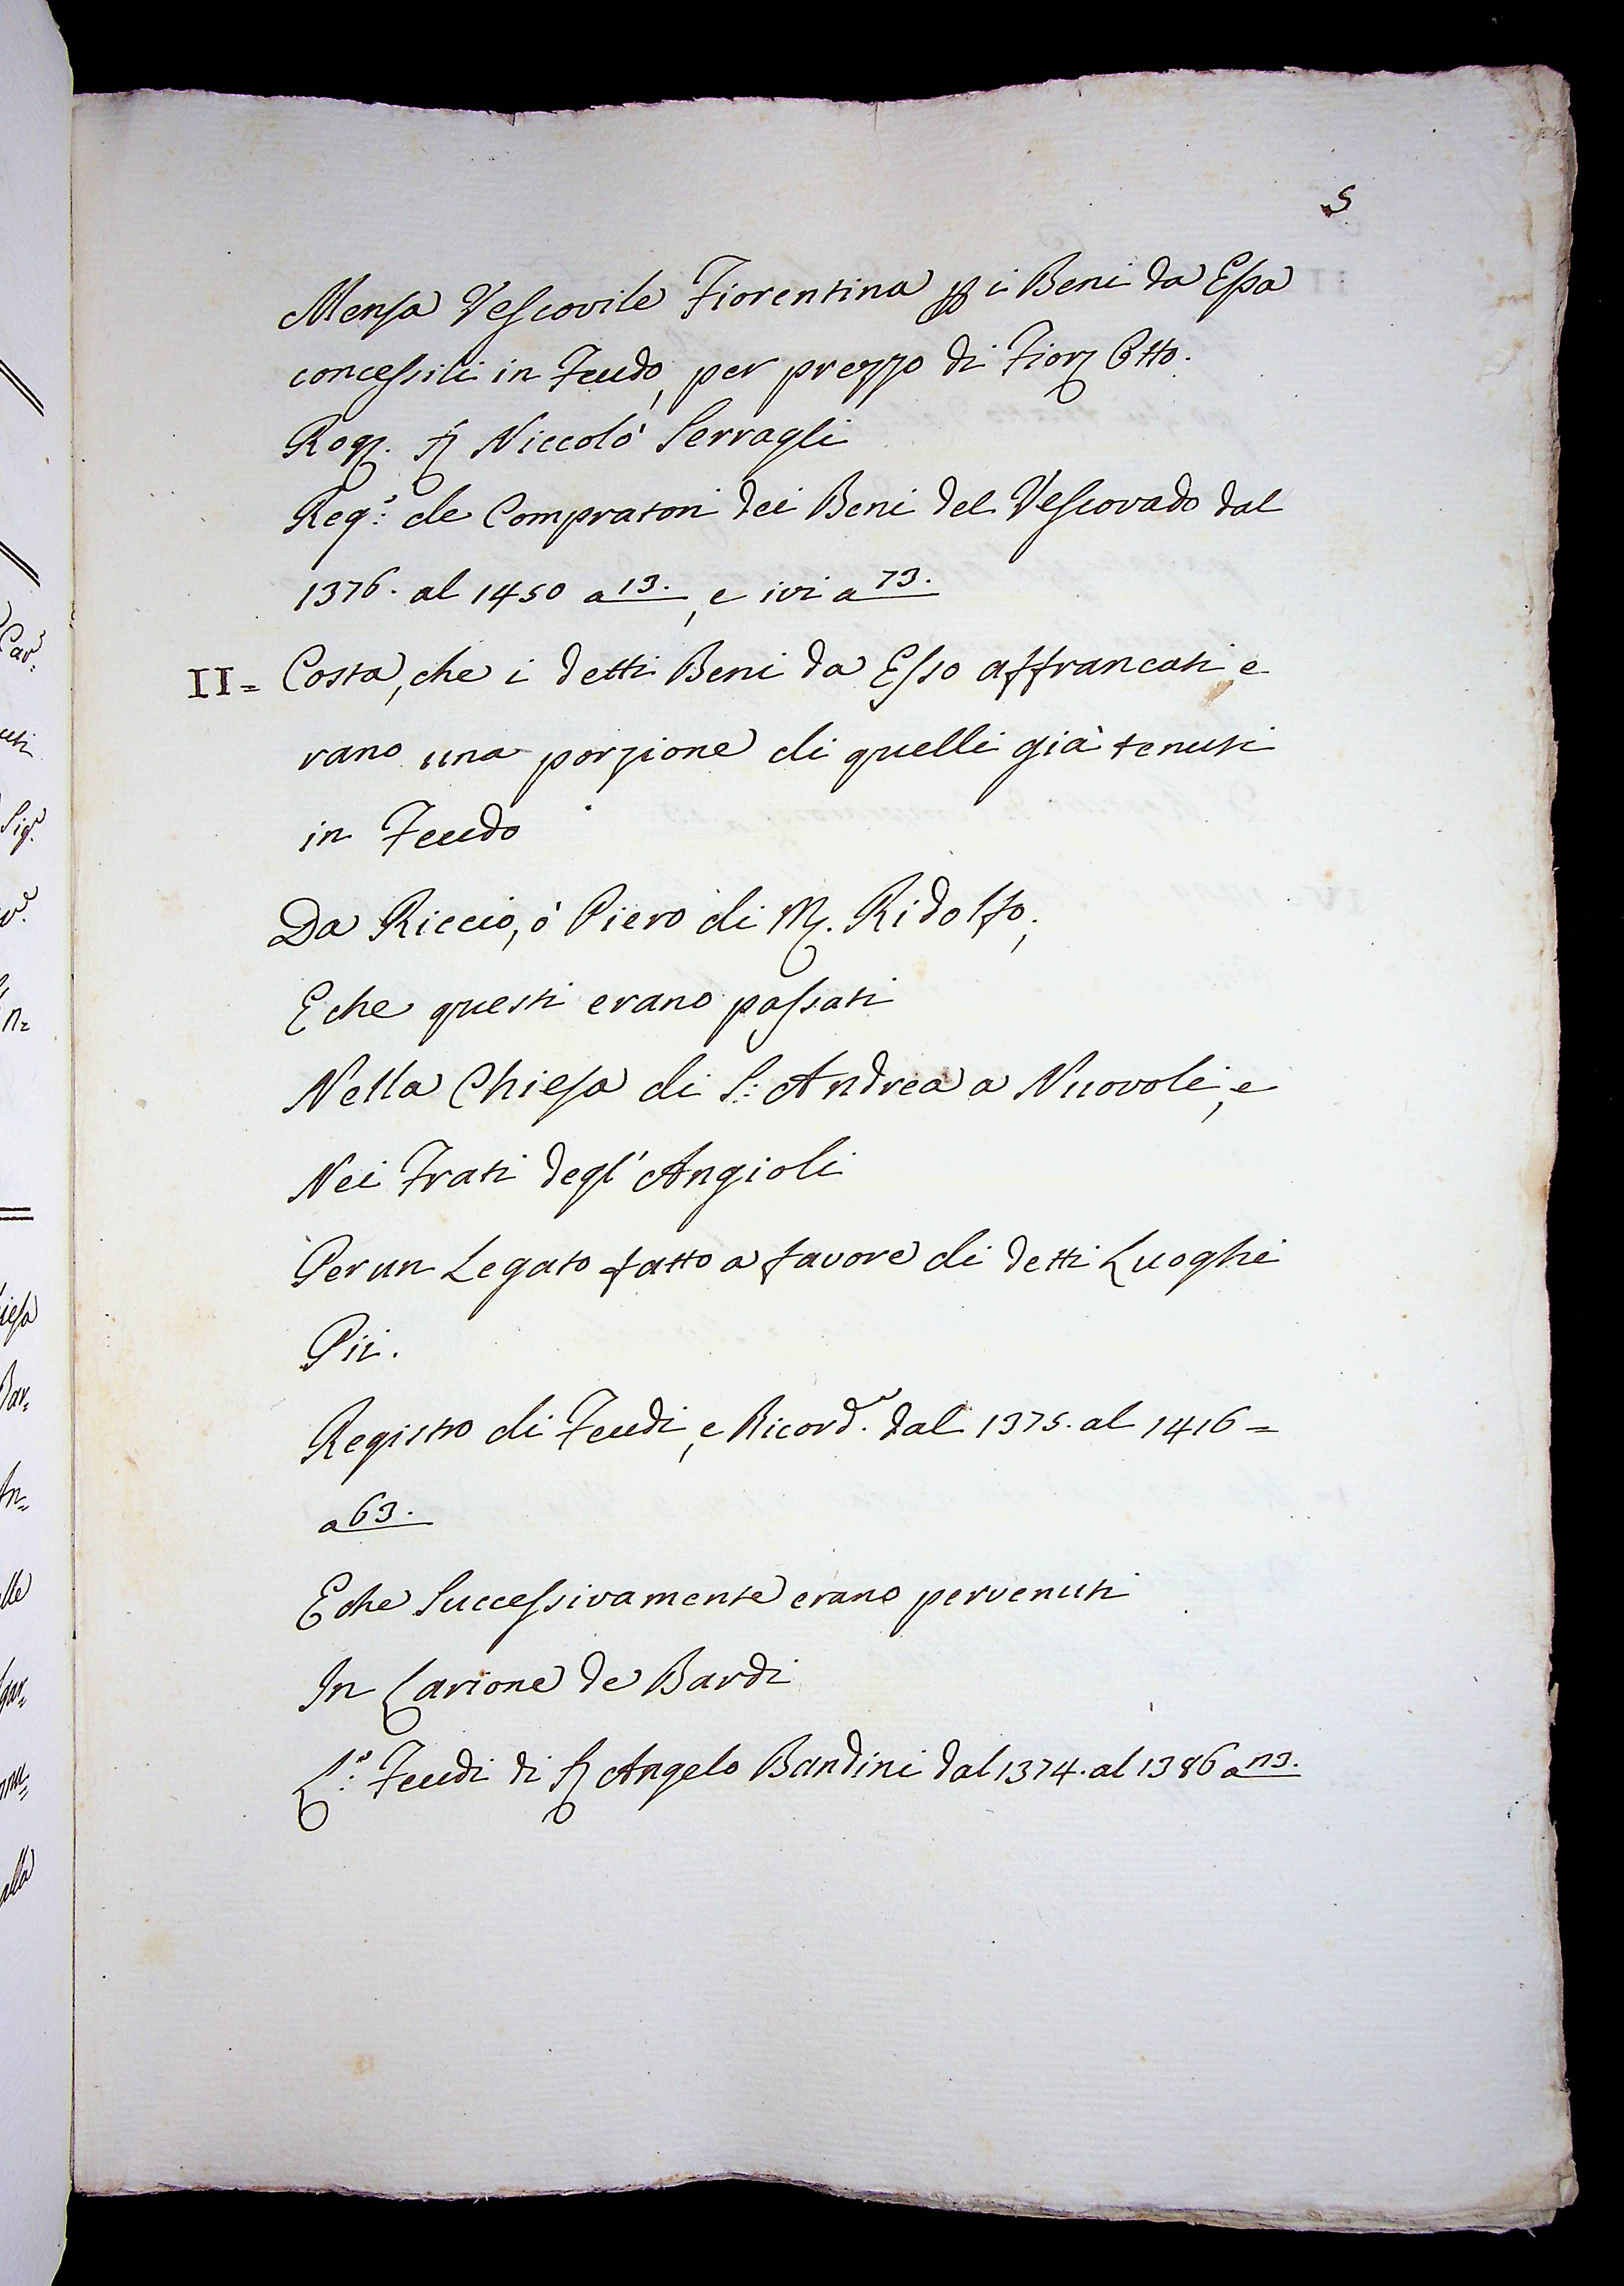 5
Mensa Vescovile Fiorentina p i Beni da Essa
concessili in Feudo, per prezzo di Fior Otto.
Rog. S Niccolò Serragli
Reg.º de Compratori dei Beni del Vescovado dal
1376. al 1450 a 13., e ivi a 73.
II= Costa, che i detti Beni da Esso affrancati, e
rano una porzione di quelli già tenuti
in Feudo
Da Riccio, ò Piero di M. Ridolfo,
E che questi erano passati
Nella Chiesa di S: Andrea a Nuovoli, e
Nei Frati degl' Angioli
Per un Legato fatto a favore di detti Luoghi
Pii.
Registro di Feudi, e Ricord.i dal 1375. al 1416=
a 63.
E che Successivamente erano pervenuti
In Larione de Bardi
L:º Feudi di S Angelo Bandini dal 1374. al 1386 a 113.
Cav:
Sig.e
n=
iesa
Bar=
An=
lle
alla